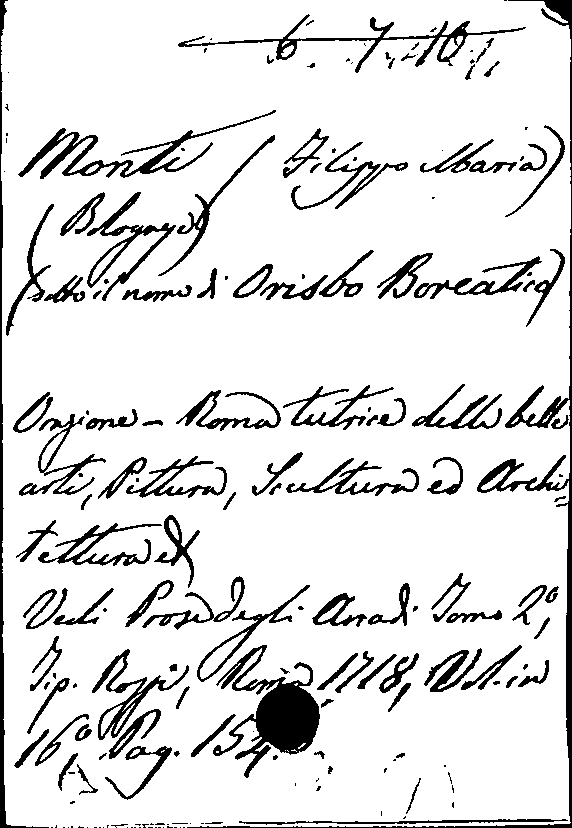 6. 7. 10
Monti (Filippo Maria)
(Bolognese)
(sotto il nome di Orisbo Boreatico)
Orazione - Roma tutrice delle belle
arti, Pittura, Scultura ed Archi=
tettura
Vedi Prose degli Arcadi Tomo 2°,
Tip. Rossi, Roma, 1718, Vol. in
16°, Pag. 154.